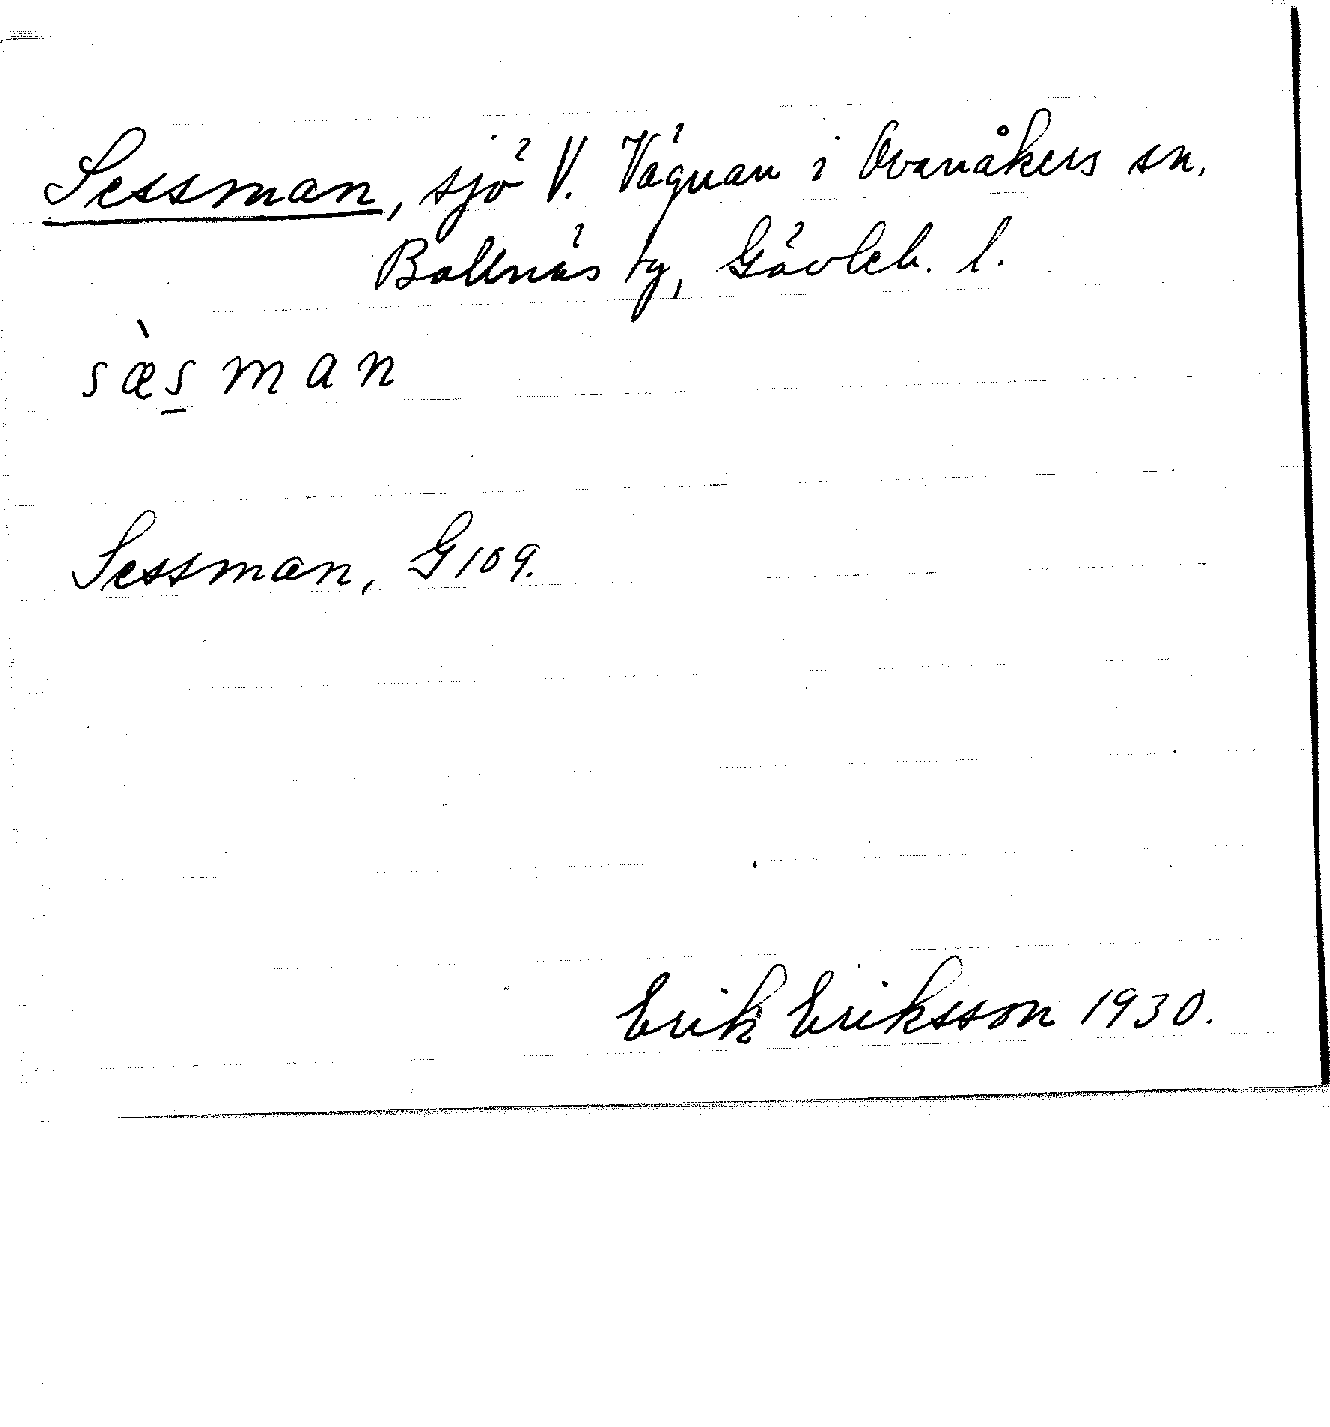 Sessman, sjö V. Vägnan i Ovanåkers sn.
Bollnäs tg, Gävleb. l.
sæ̀s̲man
Sessman, G 109.
Erik Eriksson 1930.